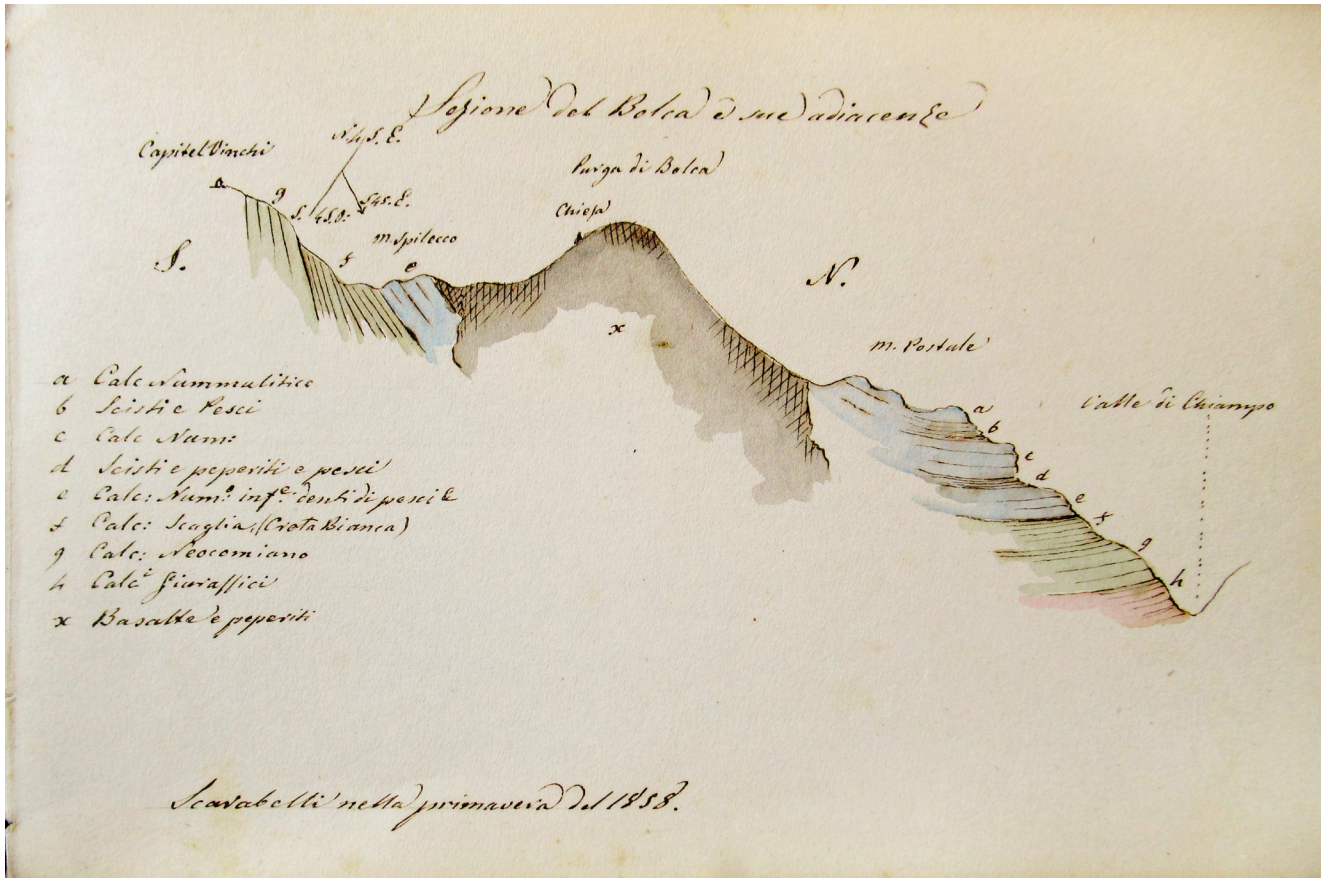 Sezione del Bolca e sue adiacenze
N. 45. E.
Capitel Vinchi
Purga di Bolca
a
g
S. 45. O.
S 45. E.
Chiesa
m. Spilecco
S.
f
e
N.
x
m. Postale
a
b
c
d
e
f
g
h
Valle di Chiampo
a Calc Nummulitico
b Scisti e Pesci
c Calc Num:
d Scisti e peperiti e pesci
e Calc: Num.º inf.e denti di pesci &
f Calc: Scaglia, (Creta Bianca)
g Calc: Neocomiano
h Calc.i Giurassici
x Basalte e peperiti
Scarabelli nella primavera del 1858.